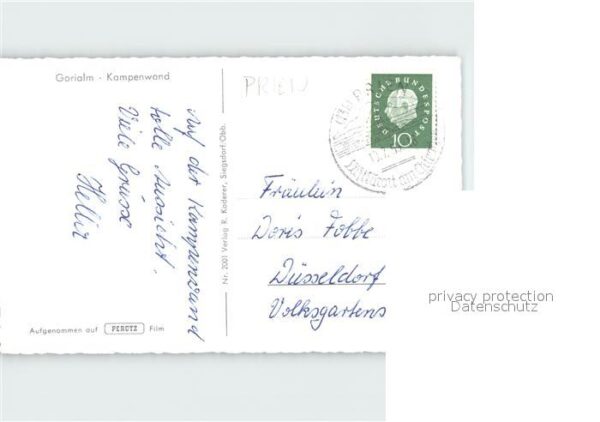 Gorialm - Kampenwand
PRIEN
DEUTSCHE BUNDESPOST
10
Auf der Kampenwand
tolle Aussicht.
Viele Grüsse
Nr. 2001 Verlag R. Koderer, Siegsdorf-Obb.
Fräulein
Doris Fobbe
Düsseldorf
Volksgartens
Aufgenommen auf PERUTZ Film
privacy protection
Datenschutz